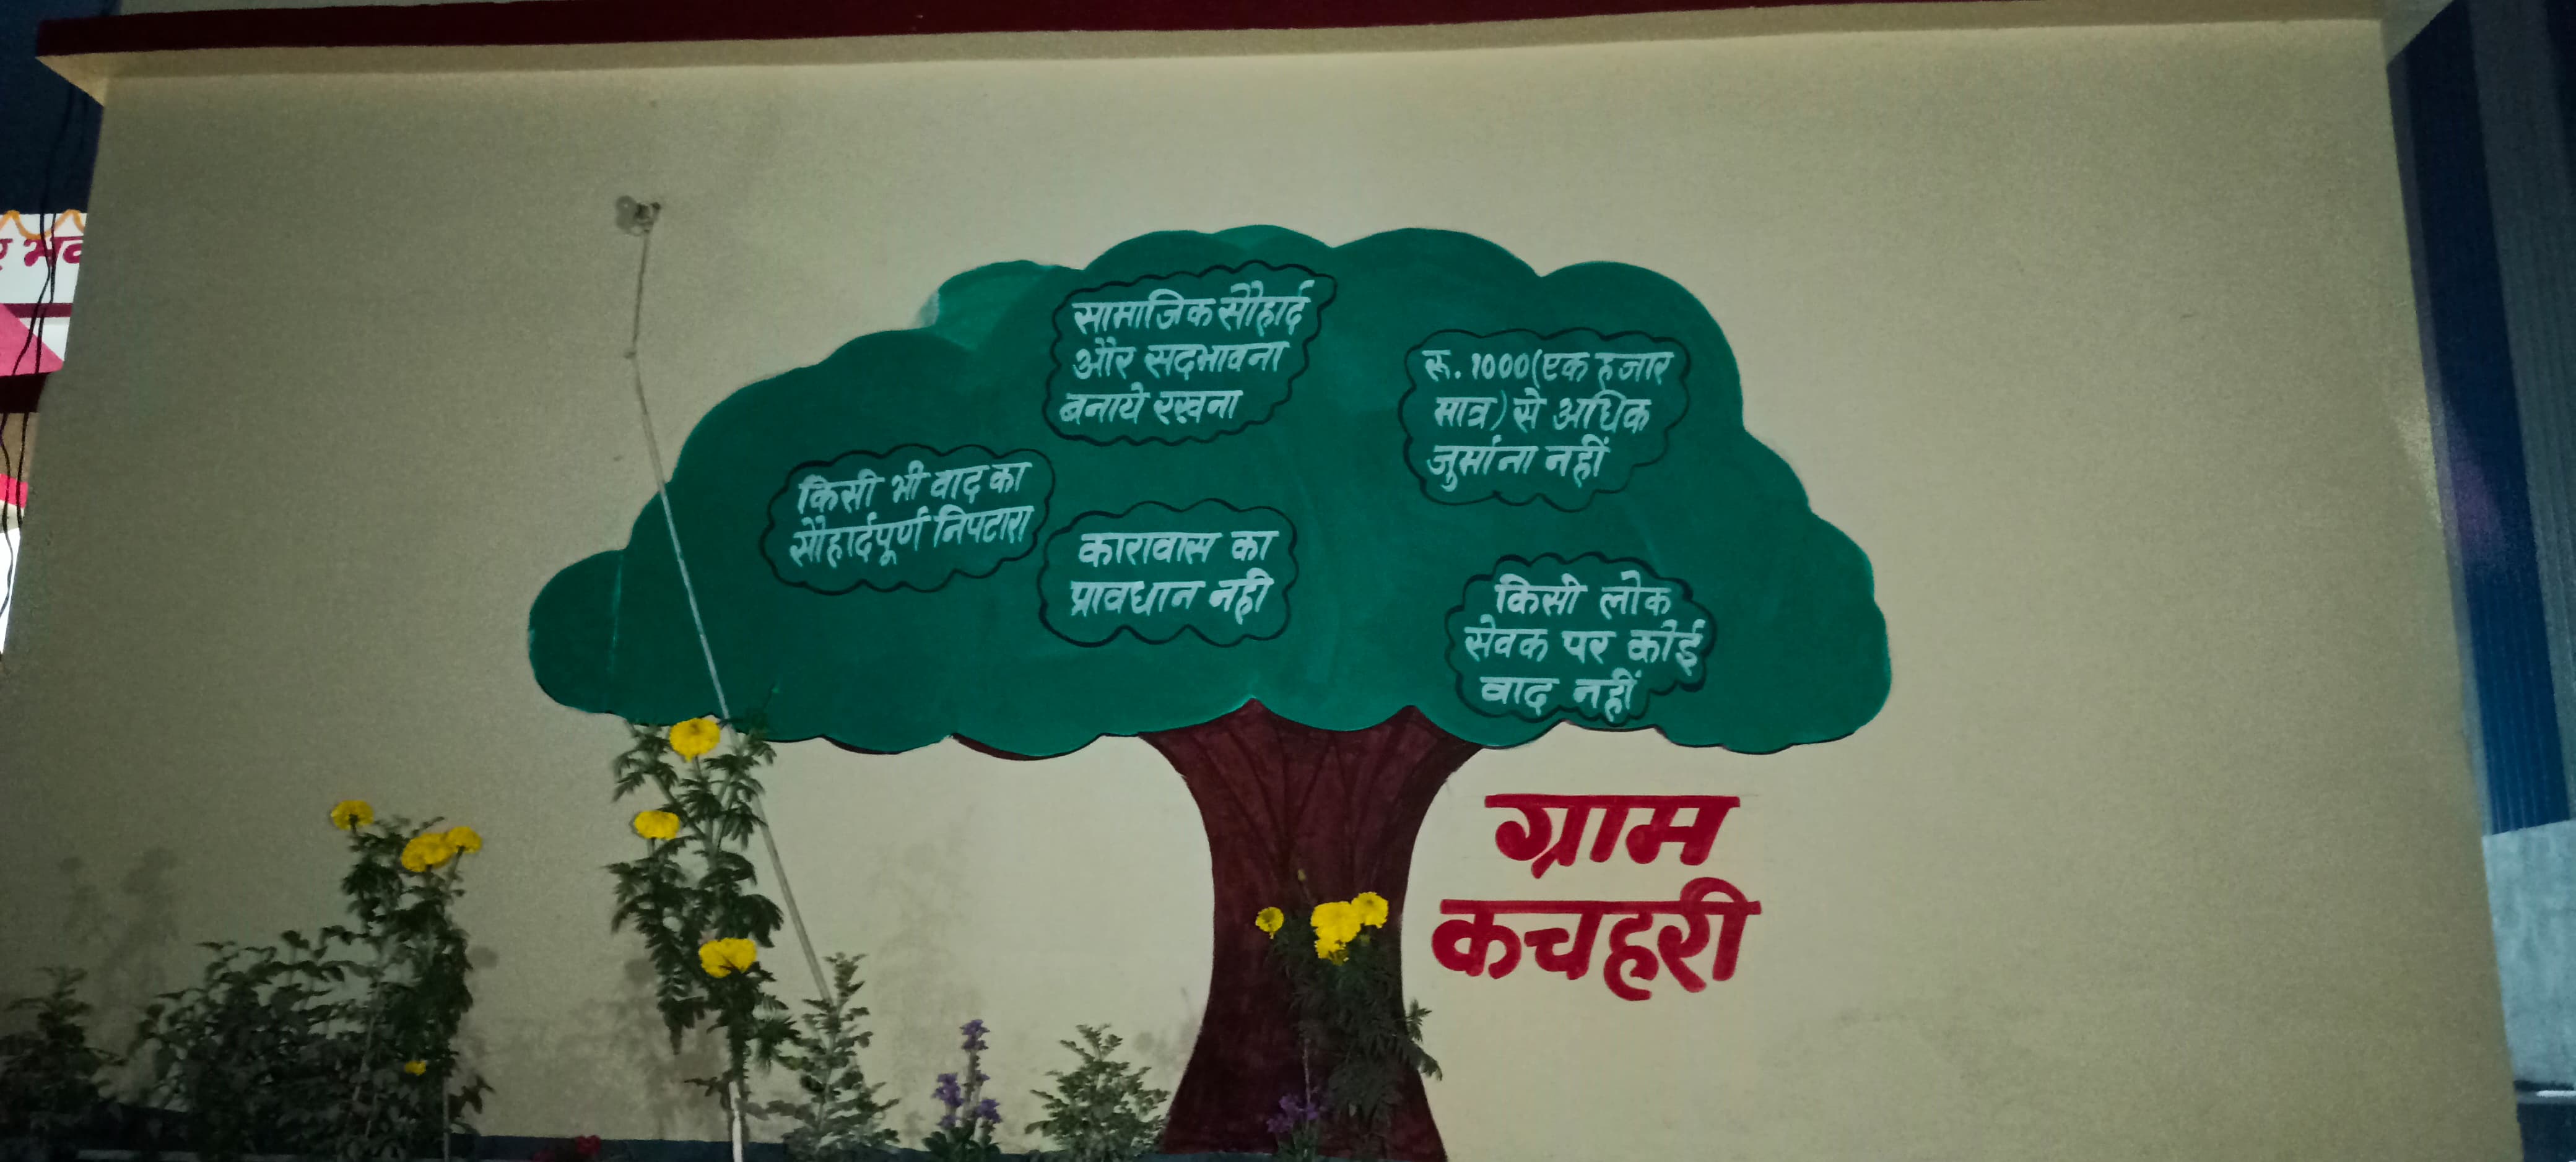 सामाजिक सौहार्द
और सदभावना
बनाये रखना
रू. 1000(एक हजार
मात्र) से अधिक
जुर्माना नहीं
किसी भी वाद का
सौहार्दपूर्ण निपटारा
कारावास का
प्रावधान नही
किसी लोक
सेवक पर कोई
वाद नहीं
ग्राम
कचहरी